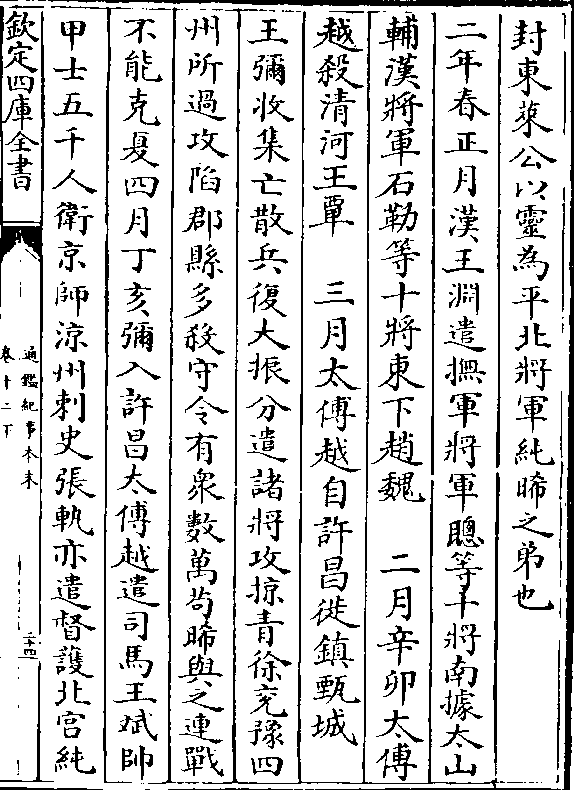 封東萊公以靈為平北將軍純晞之弟也
二年春正月漢王淵遣撫軍將軍聰等十將南據太山
輔漢將軍石勒等十將東下趙魏　二月辛卯太傅
越殺清河王覃　三月太傅越自許昌徙鎮甄城
王彌收集亡散兵復大振分遣諸將攻掠青徐兖豫四
州所過攻陷郡縣多殺守令有衆數萬苟晞與之連戰
不能克夏四月丁亥彌入許昌太傅越遣司馬王斌帥
甲士五千人衛京師涼州刺史張軌亦遣督護北宫純
欽定四庫全書
通鑑紀事本末
卷十二下